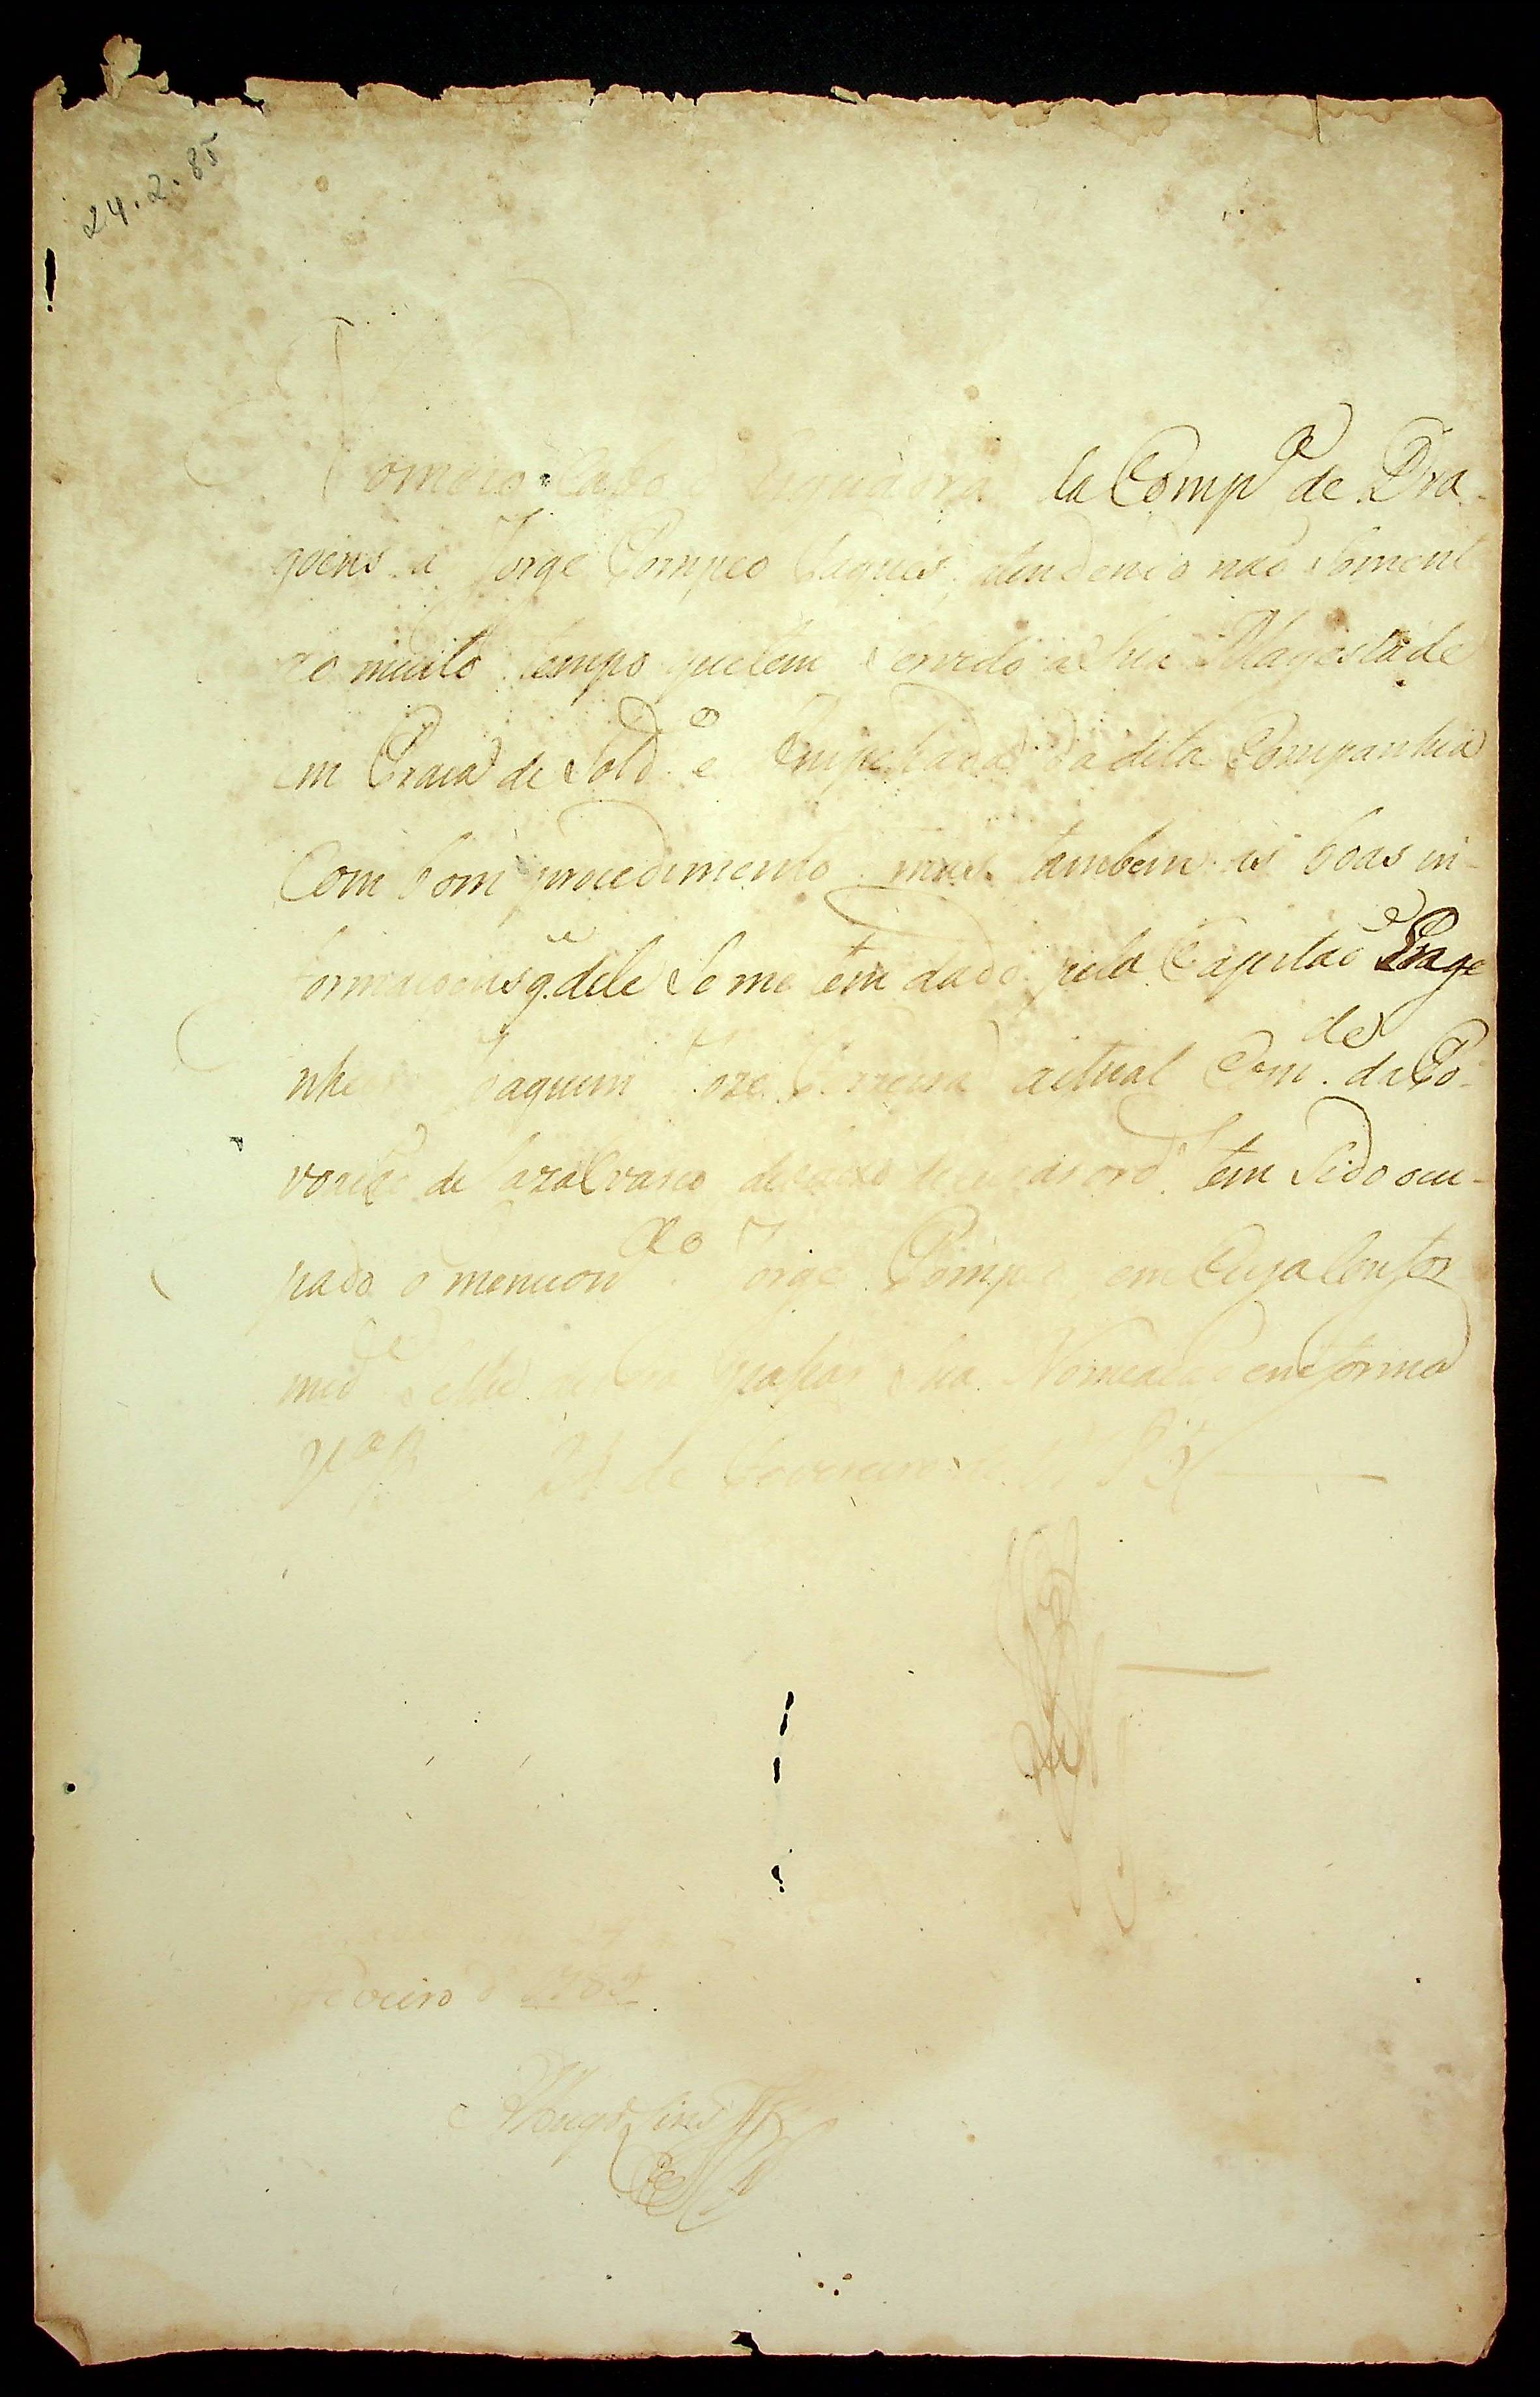 24.2.85
omeio Cabo Esquadra da Compª de Dra-
goens a Jorge Pompeo Taques, atendendo naõ Soment
ao muito tempo que tem Servido a Sua Magestade
em Praça de Soldº e da dita Companhia
Com bom procedimento, mas tambem as boas in-
formaçoens q. dele Se me tem dado pelo Capitaõ Enge
nheiro Joaquim Joze Ferreira actual Comde da Po-
voaçaõ de Cazalvasco debaixo de cujas ordˢ tem Sido ocu-
pado o menciondo Jorge Pompeo, em Cuja Confor
midde Selhe Sua Nomeaçaõ em forma
Vª Bª 24 de Fevereiro de 1785
Fevereiro de 1785.